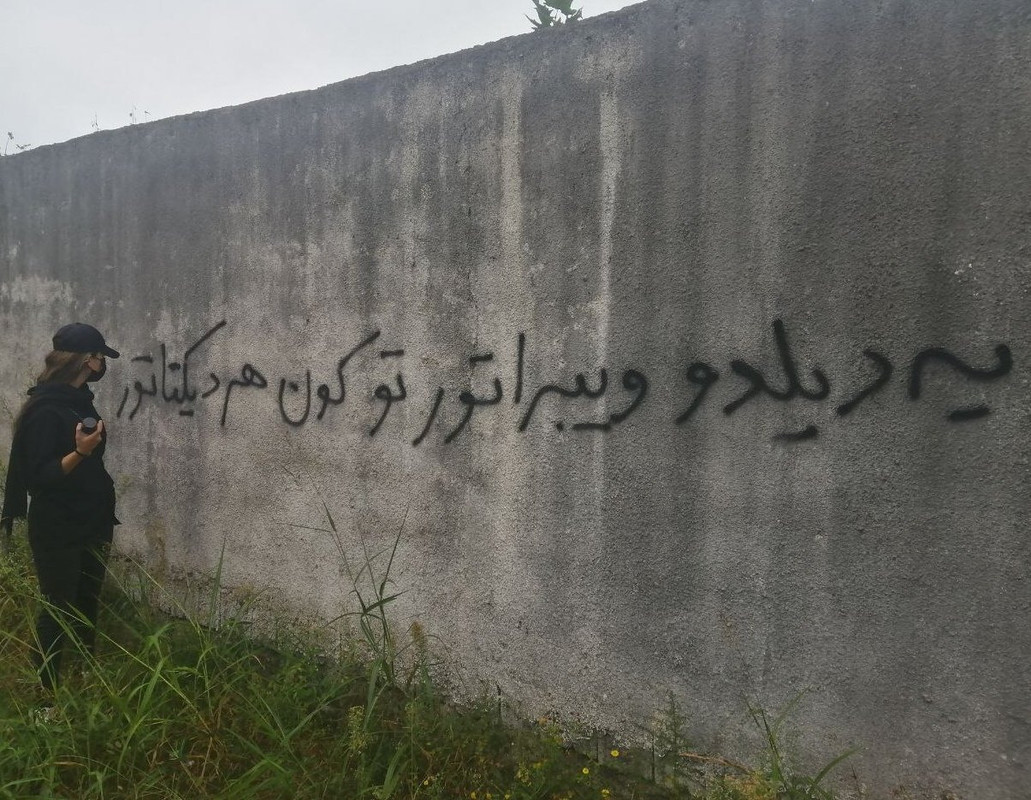 یه دیلدو ویبراتور تو کون هر دیکتاتور